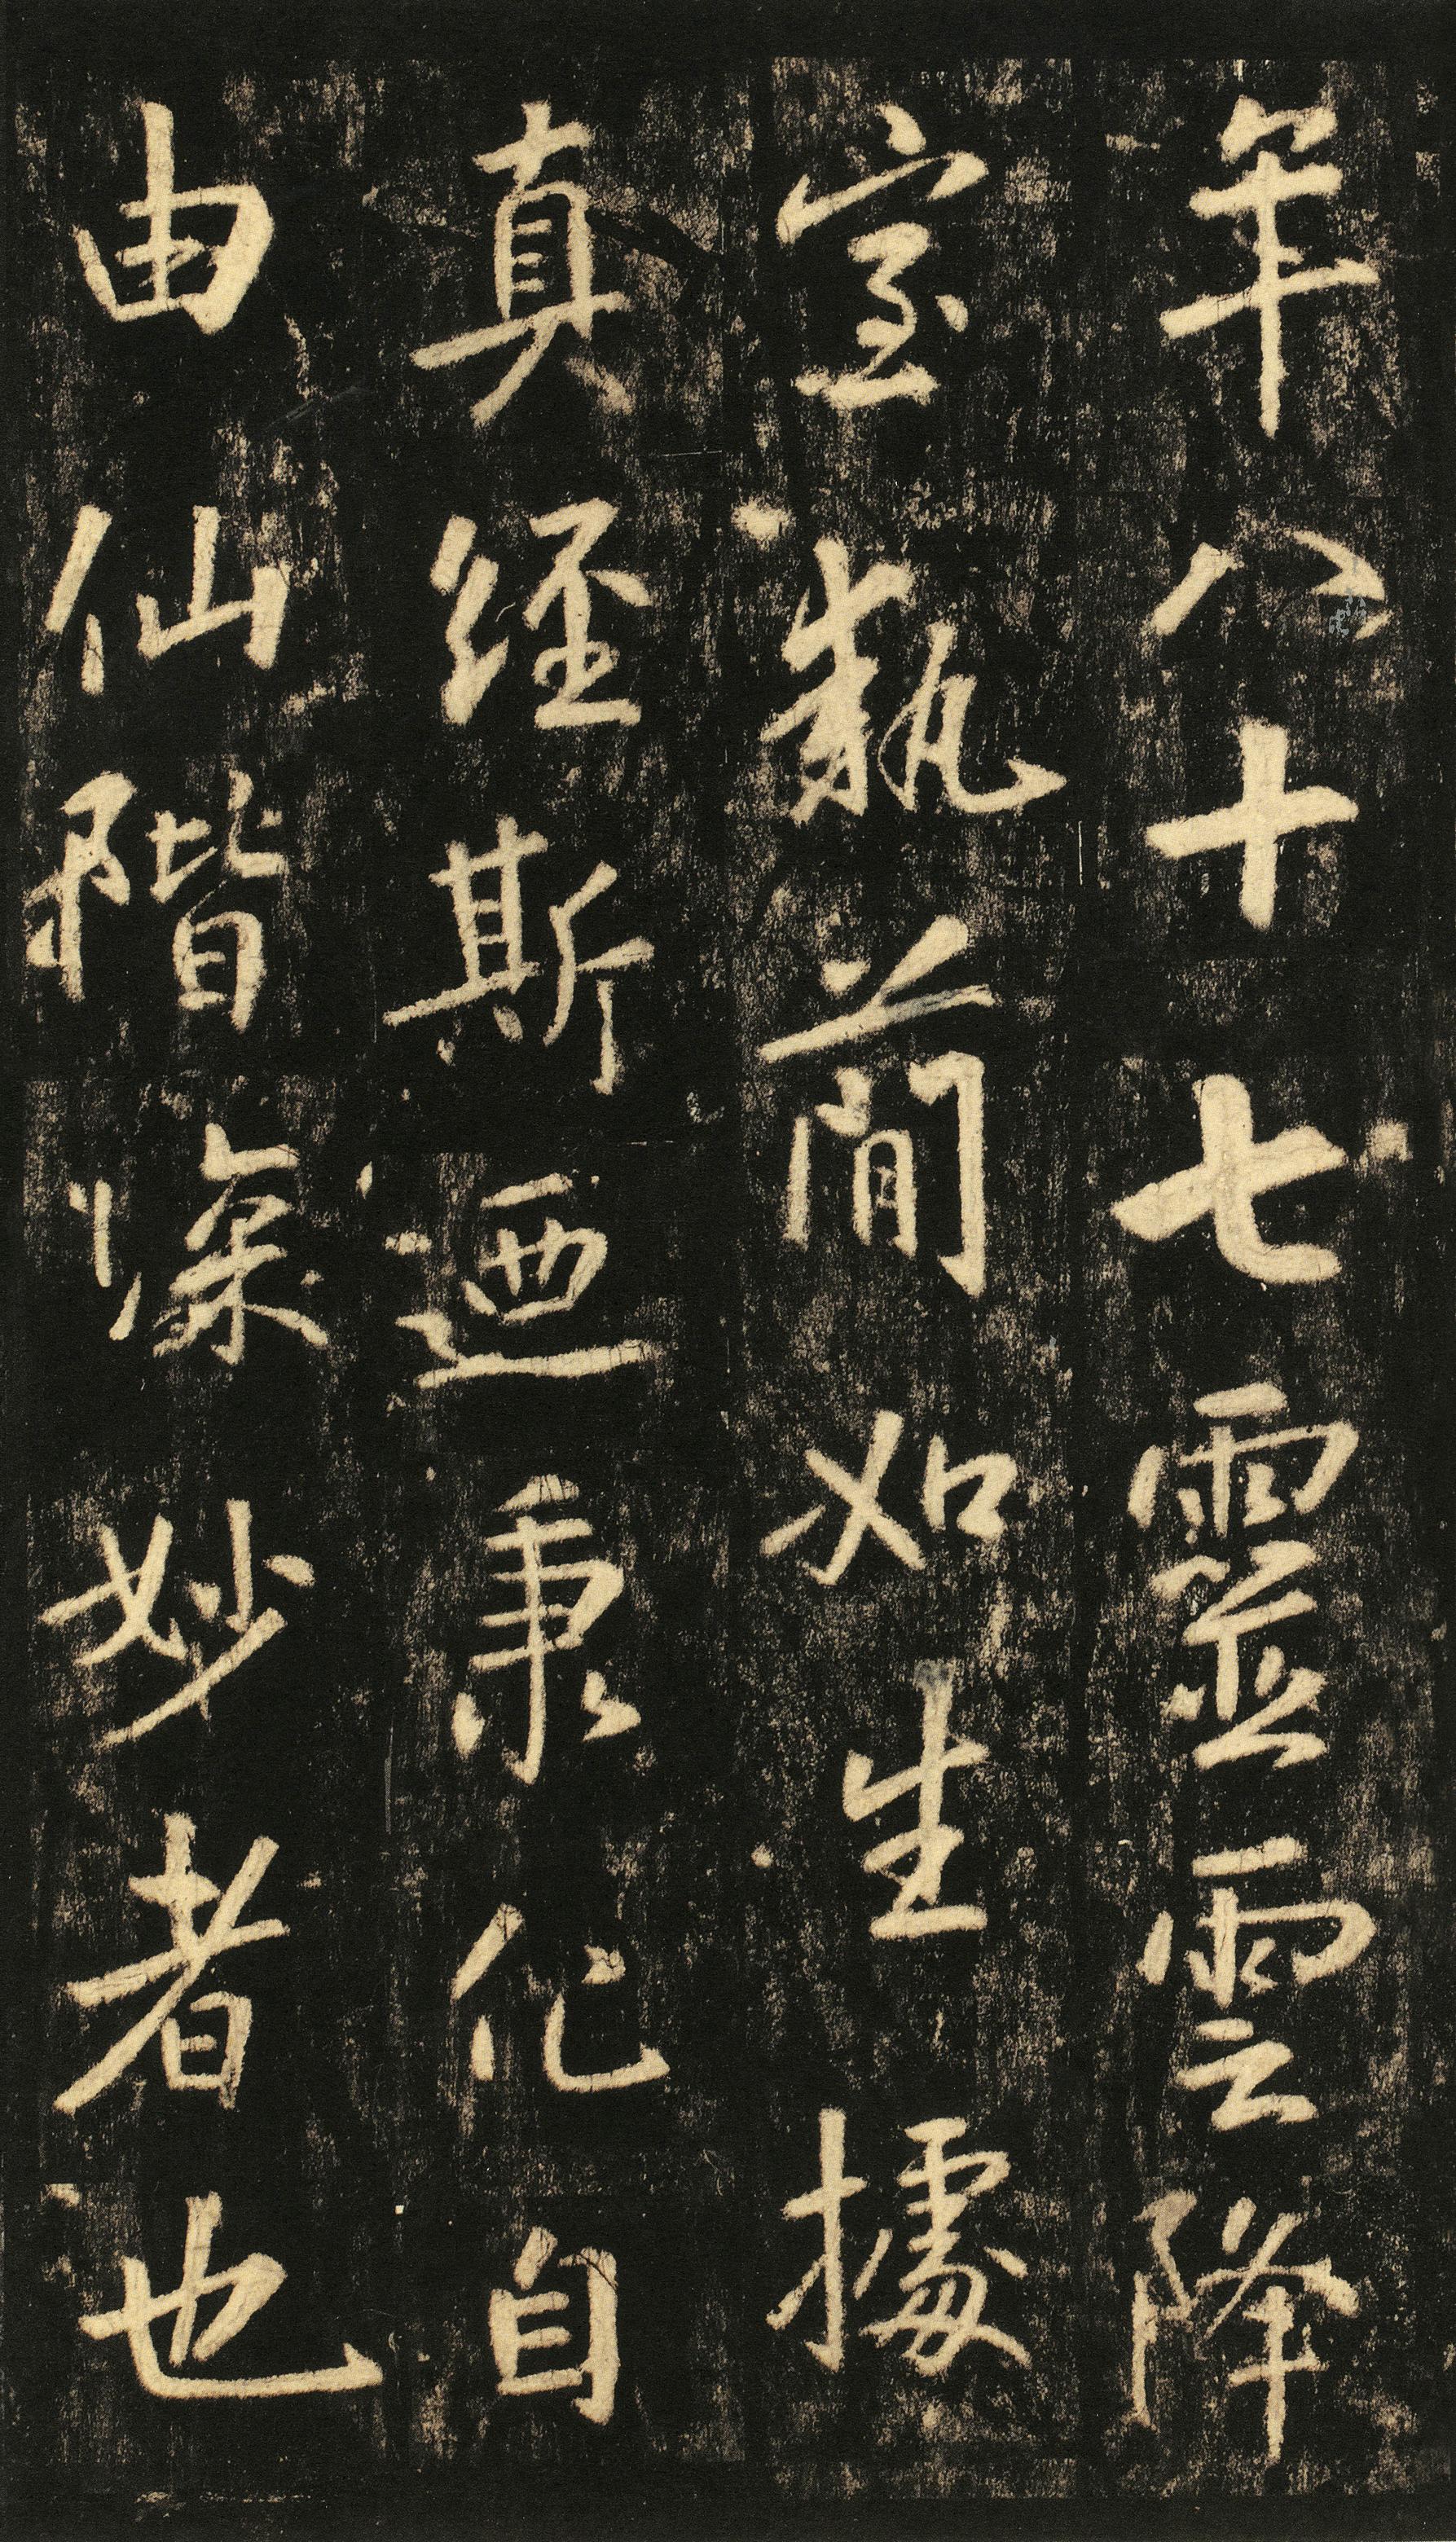 年八十七靈雲降
室執簡如生據
真經斯迺秉化自
由仙階深妙者也